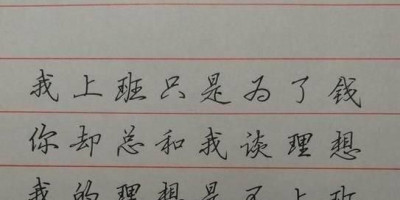 我上班只是为了钱
你却总和我谈理想
我的理想是不上班